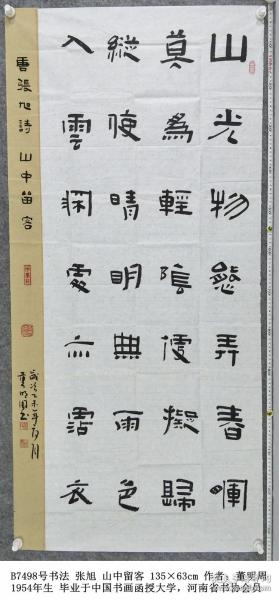 山光物態弄春暉
莫為輕陰便擬歸
縱使晴明無雨色
入雲深處亦霑衣
唐張旭詩 山中留客
歲次乙未年
董明周书
B7498号书法 张旭 山中留客 135×63cm 作者：董明周
1954年生 毕业于中国书画函授大学，河南省书协会员